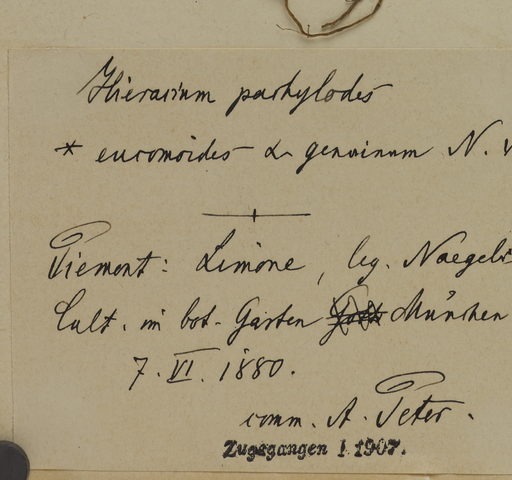 Hieracium pachylodes
* eucomoides α genuinum N.
Piemont: Limone, leg. Naegeli
Cult. im bot. Garten München
7. VI. 1880.
comm. A. Peter.
Zugegangen I 1907.